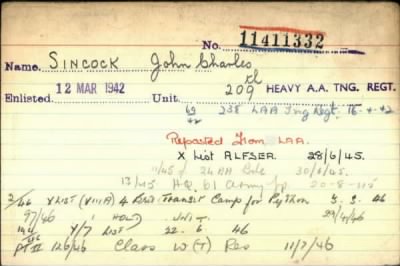 No. 11411332
Name. SINCOCK John Charles
Enlisted. 12 MAR 1942 Unit. 209 HEAVY A.A. TNG. REGT.
69/42 238 LAA Tng Regt. 16-4-42
Reposted from LAA.
X List ALFSER. 28/6/45.
11/45 24 AA Bde 30/6/45.
13/45 H.Q. 61 Army Gp 20-8-45
2/46 X LIST (VIII A) 4 Transit Camp for Python 5. 3. 46
97/46 HOLD UNIT
Y/7 LIST 22. 6. 46
PT II 126/46 Class W (T) Res 11/7/46